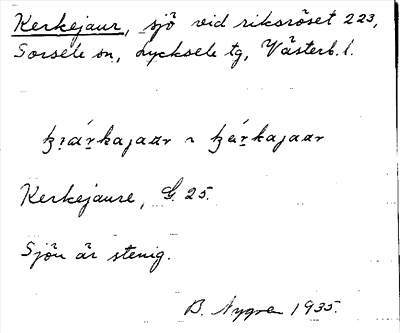 Kerkejaur, sjö vid riksröset 223,
Sorsele sn, Lycksele tg, Västerb. l.
Kerkejaure, G. 25.
Sjön är stenig.
B. Nygre 1935.